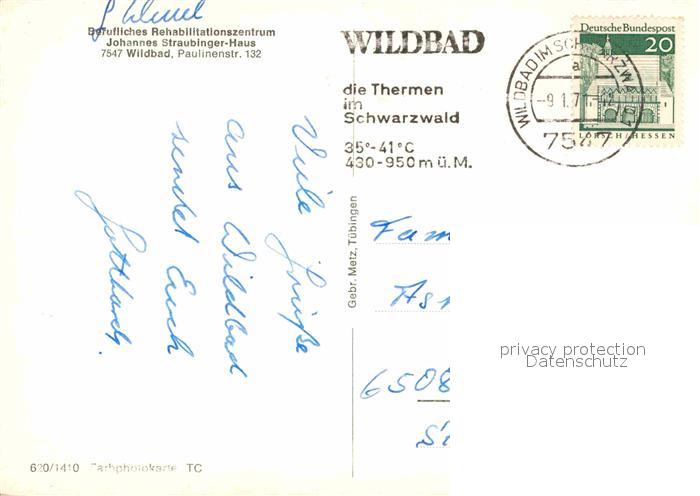 Berufliches Rehabilitationszentrum
Johannes Straubinger-Haus
7547 Wildbad, Paulinenstr. 132
Viele Grüße
aus Wildbad
sendet Euch
Gotthard.
620/1410 Farbphotokarte TC
Gebr. Metz, Tübingen
WILDBAD
die Thermen
im
Schwarzwald
35°-41°C
430-950 m ü.M.
WILDBAD IM SCHWARZW
a
-9.1.71.-12
7547
Deutsche Bundespost
20
LORSCH/HESSEN
Fam
6508
privacy protection
Datenschutz